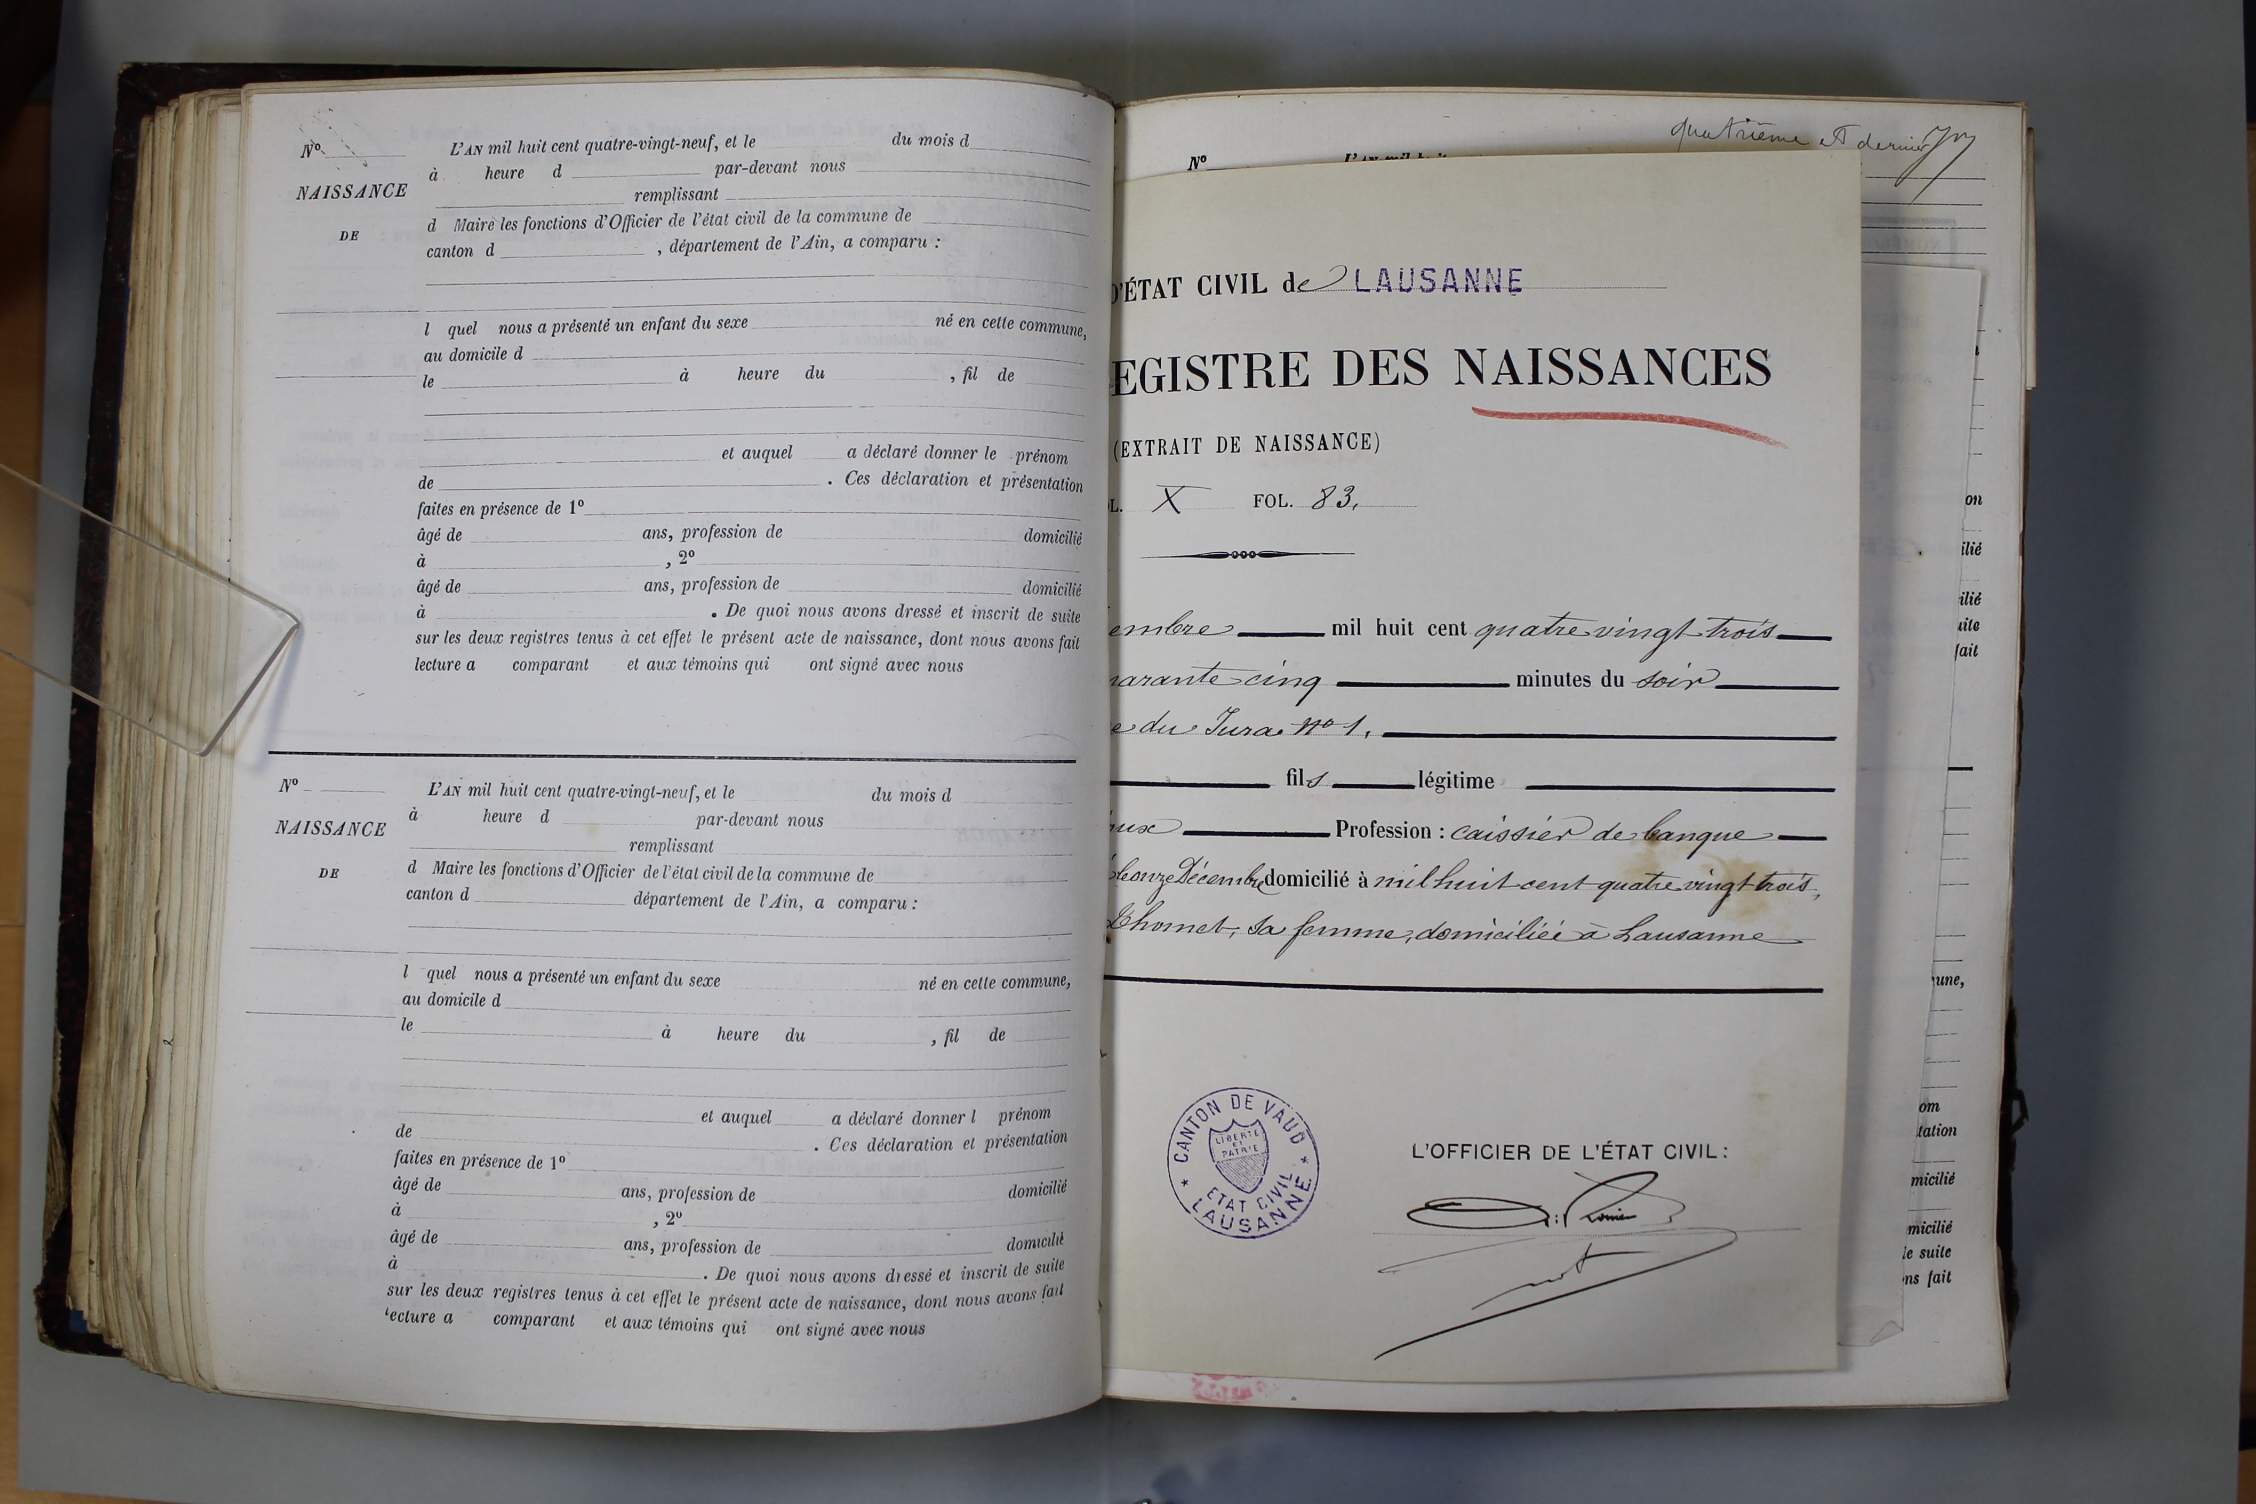 Nº L'AN mil huit cent quatre-vingt-neuf, et le du mois d
à heure d par-devant nous
NAISSANCE
remplissant
d Maire les fonctions d'Officier de l'état civil de la commune de
DE
canton d , département de l'Ain, a comparu :
l quel nous a présenté un enfant du sexe né en cette commune,
au domicile d
le à heure du , fil de
et auquel a déclaré donner le prénom
de . Ces déclaration et présentation
faites en présence de 1º
âgé de ans, profession de domicilié
à , 2º
âgé de ans, profession de domicilié
à . De quoi nous avons dressé et inscrit de suite
sur les deux registres tenus à cet effet le présent acte de naissance, dont nous avons fait
lecture a comparant et aux témoins qui ont signé avec nous
Nº L'AN mil huit cent quatre-vingt-neuf, et le du mois d
à heure d par-devant nous
NAISSANCE
remplissant
d Maire les fonctions d'Officier de l'état civil de la commune de
DE
canton d département de l'Ain, a comparu :
l quel nous a présenté un enfant du sexe né en cette commune,
au domicile d
le à heure du , fil de
et auquel a déclaré donner l prénom
de . Ces déclaration et présentation
faites en présence de 1º
âgé de ans, profession de domicilié
à , 2º
âgé de ans, profession de domicilié
à . De quoi nous avons dressé et inscrit de suite
sur les deux registres tenus à cet effet le présent acte de naissance, dont nous avons fait
lecture a comparant et aux témoins qui ont signé avec nous
quatrième et dernier
Nº L'AN mil huit
D'ÉTAT CIVIL de LAUSANNE
EGISTRE DES NAISSANCES
(EXTRAIT DE NAISSANCE)
OL. X FOL. 83.
embre mil huit cent quatre vingt trois
uarante cinq minutes du soir
e du Jura Nº 1.
fils légitime
aux Profession : caissier de banque
le onze Décembre domicilié à mil huit cent quatre vingt trois,
Thomet, sa femme, domiciliée à Lausanne
CANTON DE VAUD
LIBERTÉ
ET
PATRIE
ETAT CIVIL
LAUSANNE
L'OFFICIER DE L'ÉTAT CIVIL :
on
ilié
ilié
uite
fait
une,
om
tation
micilié
micilié
le suite
ns fait